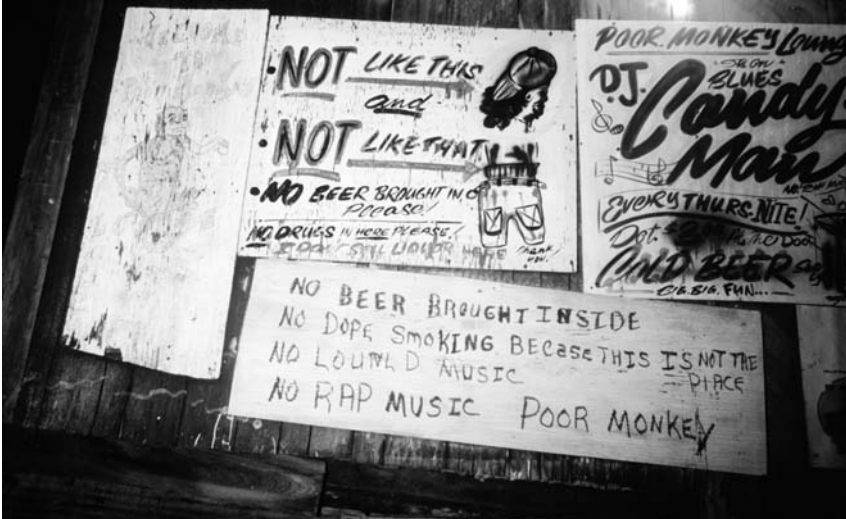 • NOT LIKE THIS
and
NOT LIKE THAT
• NO BEER BROUGHT IN
Please!
NO DRUGS IN HERE PLEASE!
I DON'T SELL LIQUOR HERE
THANK YOU.
POOR MONKEY Lounge
BLUES
D.J. Candy
Man
EVERY THURS. NITE!
At the Door
COLD BEER
BIG. BIG. FUN...
NO BEER BROUGHT INSIDE
NO DOPE SMOKING BECase THIS IS NOT THE
PlACE
NO MUSIC
NO RAP MUSIC POOR MONKEY